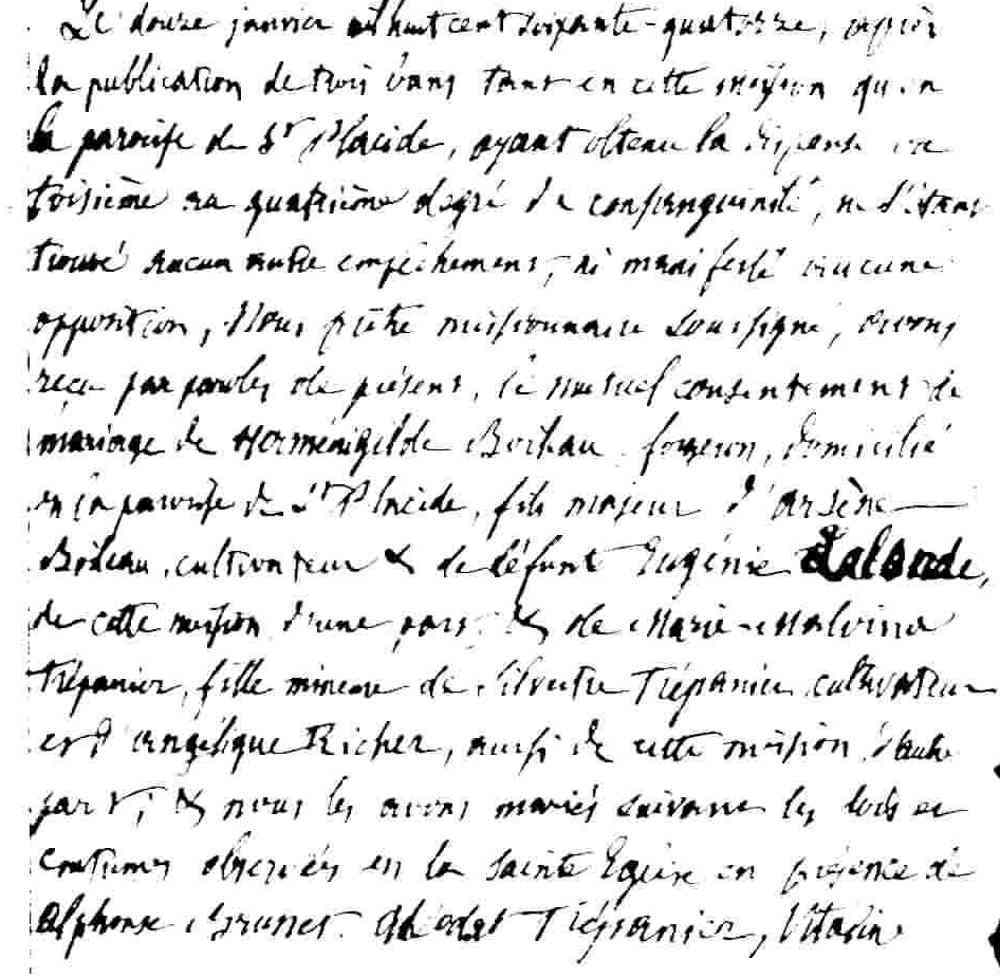 Le douze janvier mil huit cent soixante-quatorze, après
la publication de trois bans tant en cette mission qu'en
la paroisse de St Placide, ayant obtenu la dispense du
troisième au quatrième degré de consanguinité, ne s'étant
trouvé aucun autre empêchement, ni manifesté aucune
opposition, Nous prêtre missionnaire soussigné, avons
reçu par paroles de présent, le mutuel consentement de
mariage de Herménégilde Boileau forgeron, domicilié
en la paroisse de St Placide, fils majeur d'Arsène
Boileau, cultivateur & de défunte Eugénie Lalonde,
de cette mission d'une part; & de Marie-Malvina
Trépanier, fille mineure de Silvestre Trépanier cultivateur
et d'Angélique Richer, aussi de cette mission d'autre
part; & nous les avons mariés suivant les lois et
coutumes observées en la Sainte Eglise en présence de
Alphonse Brunet Trépanier,